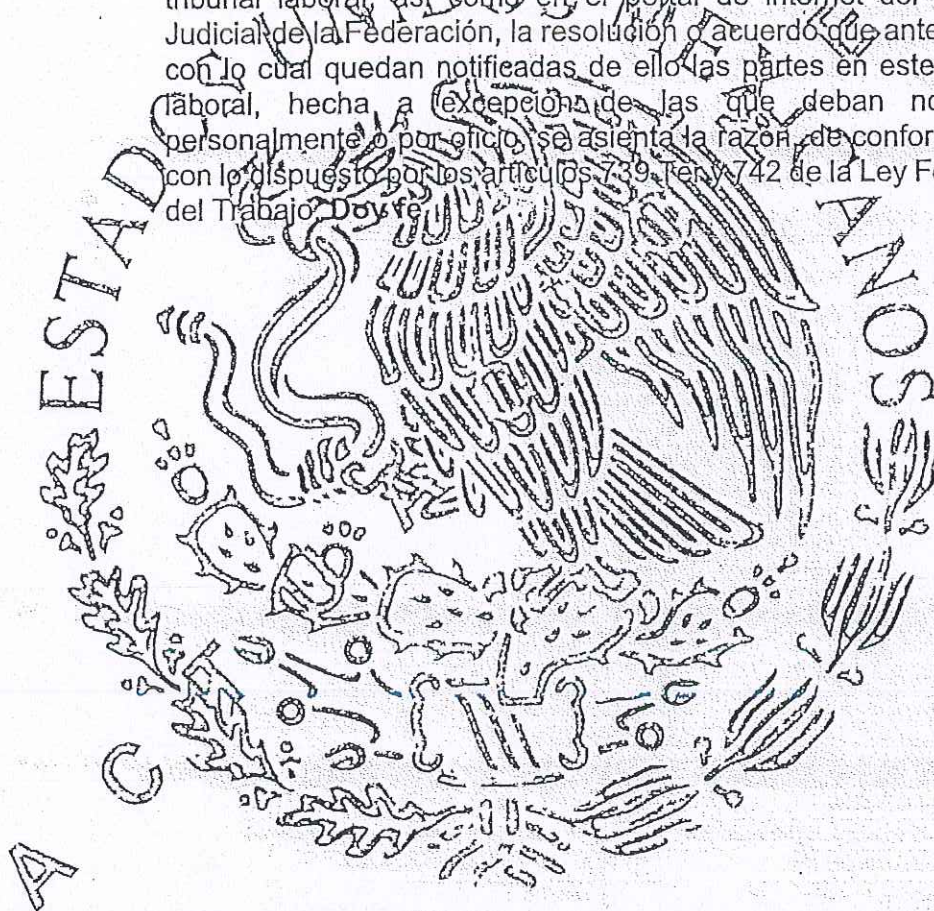 tribunal laboral, así como en el portal de internet del
Judicial de la Federación, la resolución o acuerdo que ante
con lo cual quedan notificadas de ello las partes en este
laboral, hecha a excepción de las que deban no
personalmente o por oficio, se asienta la razón, de confor
con lo dispuesto por los artículos 739 Ter y 742 de la Ley Fe
del Trabajo. Doy fe.
ESTAD
ANOS
A C